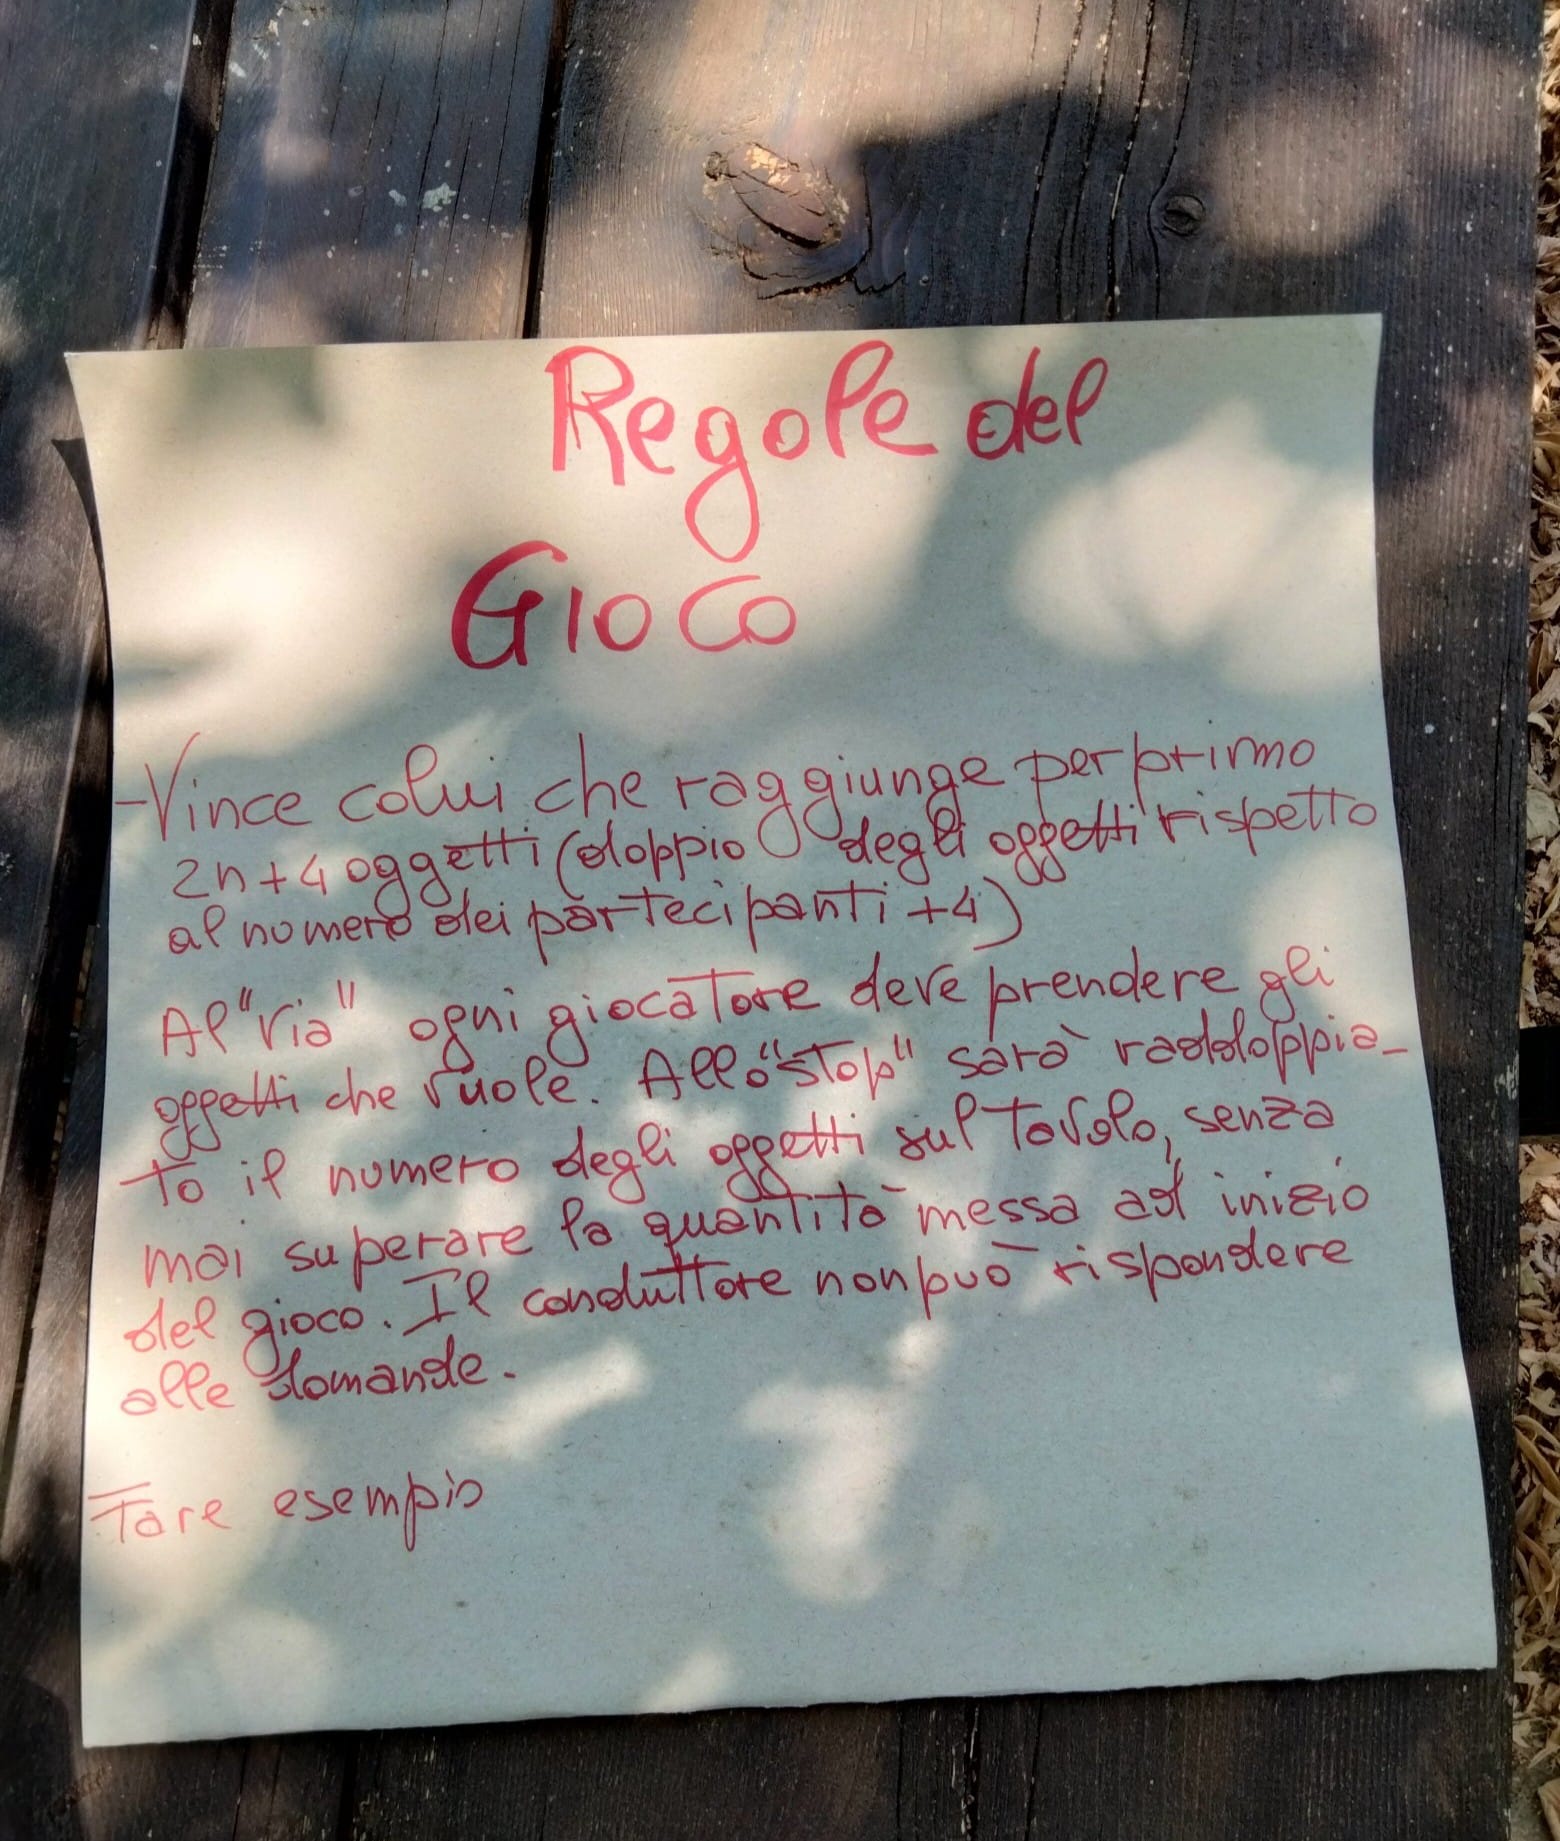 Regole del
Gioco
-Vince colui che raggiunge per primo
2n+4 oggetti (doppio degli oggetti rispetto
al numero dei partecipanti +4)
Al "via" ogni giocatore deve prendere gli
oggetti che vuole. Allo "stop" sarà raddoppia-
to il numero degli oggetti sul tavolo, senza
mai superare la quantità messa ad inizio
del gioco. Il conduttore non può rispondere
alle domande.
Fare esempio